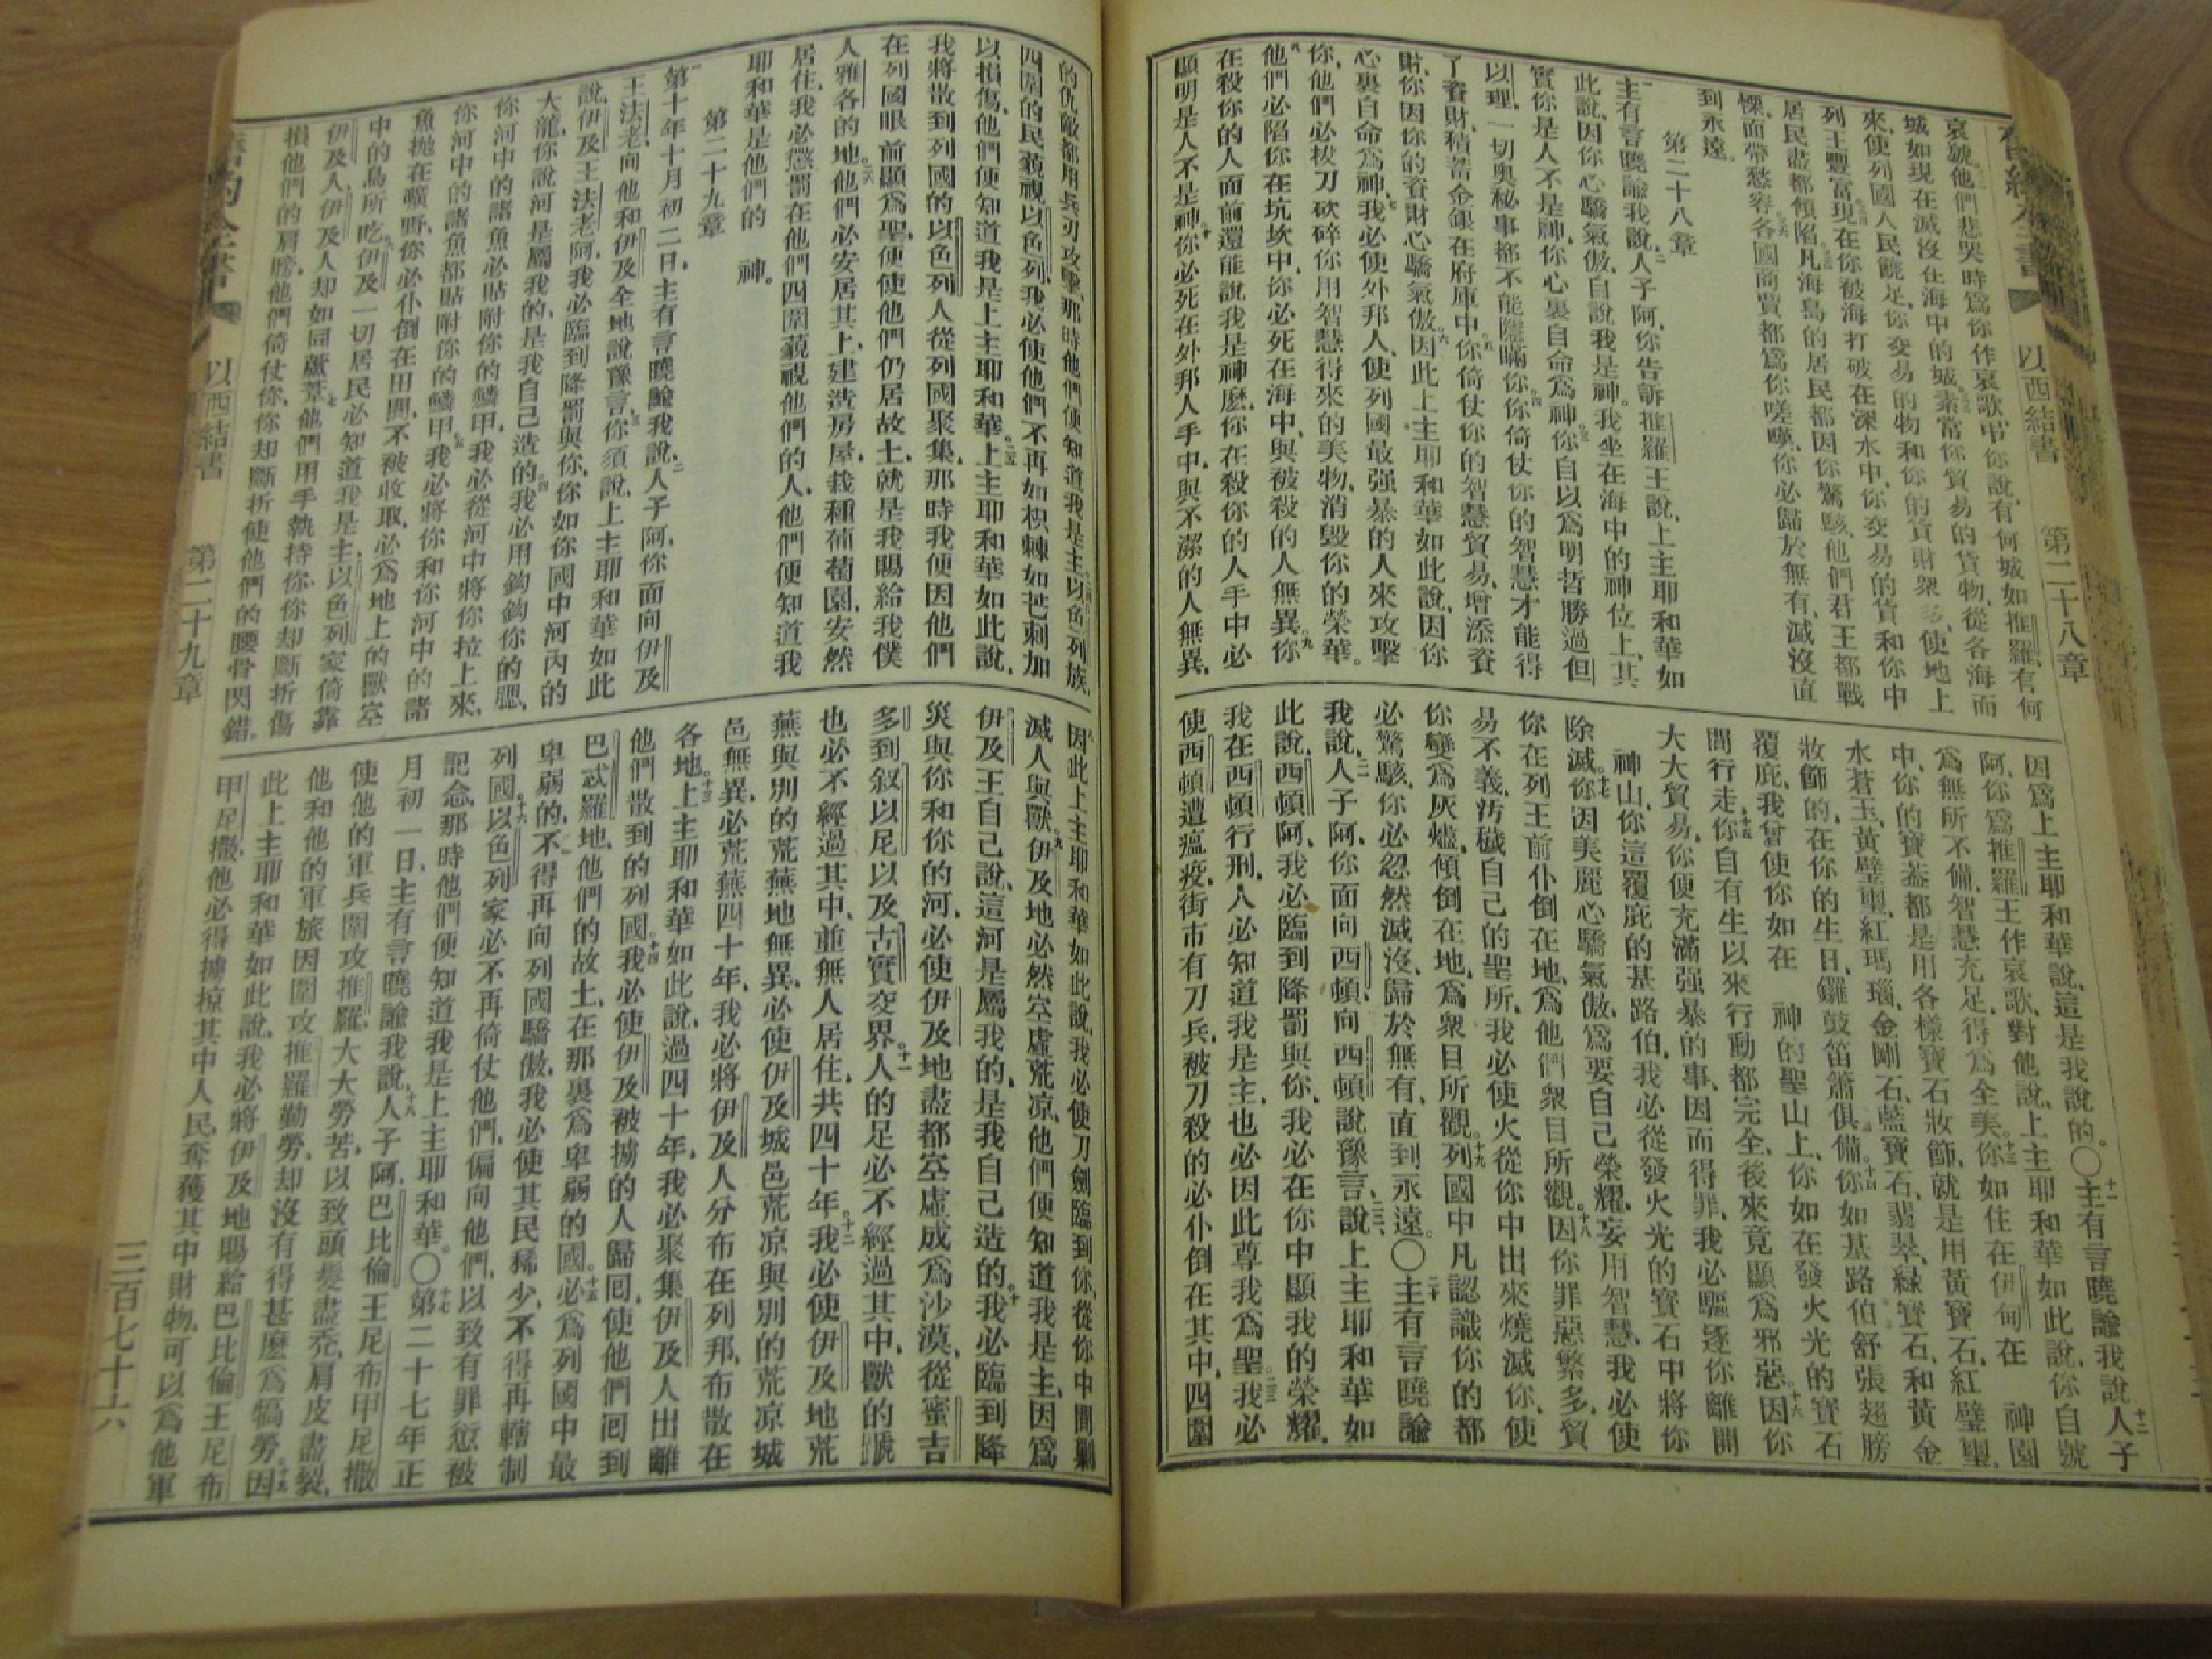 以西結書 第二十八章
哀號、他們悲哭時爲你作哀歌、弔你說、有何城如推羅、有何
城如現在滅沒在海中的城。素常你貿易的貨物、從各海而
來、使列國人民饒足、你交易的物和你的貨財衆多、使地上
列王豐富、現在你被海打破在深水中、你交易的貨和你中
居民盡都傾陷。凡海島的居民都因你驚駭、他們君王都戰
慄、面帶愁容。各國商賈都爲你嗟嘆、你必歸於無有、滅沒直
到永遠。
第二十八章
主有言曉諭我說、人子阿、你告訴推羅王說、上主耶和華如
此說、因你心驕氣傲、自說我是神。我坐在海中的神位上、其
實你是人不是神、你心裏自命爲神。你自以爲明哲勝過但
以理、一切奧秘事都不能隱瞞你。你倚仗你的智慧才能得
了資財、積蓄金銀在府庫中。你倚仗你的智慧貿易、增添資
財、你因你的資財心驕氣傲。因此上主耶和華如此說、因你
心裏自命爲神、我必使外邦人、使列國最强暴的人來攻擊
你、他們必拔刀砍碎你用智慧得來的美物、消毀你的榮華。
他們必陷你在坑坎中、你必死在海中、與被殺的人無異。你
在殺你的人面前還能說我是神麽、你在殺你的人手中必
顯明是人不是神。你必死在外邦人手中、與不潔的人無異、
因爲上主耶和華說、這是我說的。〇主有言曉諭我說、人子
阿、你爲推羅王作哀歌、對他說、上主耶和華如此說、你自號
爲無所不備、智慧充足、得爲全美。你如住在伊甸在 神園
中、你的寶蓋都是用各樣寶石妝飾、就是用黃寶石、紅璧璽、
水蒼玉、黃璧璽、紅瑪瑙、金剛石、藍寶石、翡翠、綠寶石、和黃金
妝飾的、在你的生日、鑼鼓笛簫俱備。你如基路伯舒張翅膀
覆庇、我曾使你如在 神的聖山上、你如在發火光的寶石
間行走。你自有生以來行動都完全、後來竟顯爲邪惡。因你
大大貿易、你便充滿强暴的事、因而得罪、我必驅逐你離開
神山、你這覆庇的基路伯、我必從發火光的寶石中將你
除滅。你因美麗心驕氣傲、爲要自己榮耀、妄用智慧、我必使
你在列王前仆倒在地、爲他們衆目所觀。因你罪惡繁多、貿
易不義、汚穢自己的聖所、我必使火從你中出來燒滅你、使
你變爲灰燼、傾倒在地、爲衆目所觀。列國中凡認識你的都
必驚駭、你必忽然滅沒、歸於無有、直到永遠。〇主有言曉諭
我說、人子阿、你面向西頓、向西頓說豫言、說上主耶和華如
此說、西頓阿、我必臨到降罰與你、我必在你中顯我的榮耀、
我在西頓行刑、人必知道我是主、也必因此尊我爲聖。我必
使西頓遭瘟疫、街市有刀兵、被刀殺的必仆倒在其中、四圍
的仇敵都用兵刃攻擊、那時他們便知道我是主。以色列族、
四圍的民藐視以色列、我必使他們不再如枳棘如芒刺加
以損傷、他們便知道我是上主耶和華。上主耶和華如此說、
我將散到列國的以色列人從列國聚集、那時我便因他們
在列國眼前顯爲聖、便使他們仍居故土、就是我賜給我僕
人雅各的地。他們必安居其上、建造房屋、栽種葡萄園、安然
居住、我必懲罰在他們四圍藐視他們的人、他們便知道我
耶和華是他們的 神。
第二十九章
第十年十月初二日、主有言曉諭我說、人子阿、你面向伊及
王法老、向他和伊及全地說豫言。你須說、上主耶和華如此
說、伊及王法老阿、我必臨到降罰與你、你如你國中河內的
大龍、你說河是屬我的、是我自己造的。我必用鈎鈎你的腮、
你河中的諸魚必貼附你的鱗甲、我必從河中將你拉上來、
你河中的諸魚都貼附你的鱗甲。我必將你和你河中的諸
魚抛在曠野、你必仆倒在田間、不被收取、必爲地上的獸空
中的鳥所吃。伊及一切居民必知道我是主、以色列家倚靠
伊及人、伊及人却如同蘆葦。他們用手執持你、你却斷折傷
損他們的肩膀、他們倚仗你、你却斷折使他們的腰骨閃錯。
因此上主耶和華如此說、我必使刀劍臨到你、從你中間剿
滅人與獸。伊及地必然空虛荒凉、他們便知道我是主、因爲
伊及王自己說、這河是屬我的、是我自己造的。我必臨到降
災與你和你的河、必使伊及地盡都空虛成爲沙漠、從蜜吉
多到叙以尼以及古實交界。人的足必不經過其中、獸的蹏
也必不經過其中、並無人居住、共四十年。我必使伊及地荒
蕪與別的荒蕪地無異、必使伊及城邑荒凉與別的荒凉城
邑無異、必荒蕪四十年、我必將伊及人分布在列邦、布散在
各地。上主耶和華如此說、過四十年、我必聚集伊及人出離
他們散到的列國。我必使伊及被擄的人歸囘、使他們囘到
巴忒羅地、他們的故土、在那裏爲卑弱的國。必爲列國中最
卑弱的、不得再向列國驕傲、我必使其民稀少、不得再轄制
列國。以色列家必不再倚仗他們、偏向他們、以致有罪愆被
記念、那時他們便知道我是上主耶和華。〇第二十七年正
月初一日、主有言曉諭我說、人子阿、巴比倫王尼布甲尼撒
使他的軍兵圍攻推羅、大大勞苦、以致頭髮盡禿、肩皮盡裂、
他和他的軍旅因圍攻推羅勤勞、却沒有得甚麽爲犒勞。因
此上主耶和華如此說、我必將伊及地賜給巴比倫王尼布
甲尼撒、他必得擄掠其中人民、奪獲其中財物、可以爲他軍
以西結書 第二十九章 三百七十六